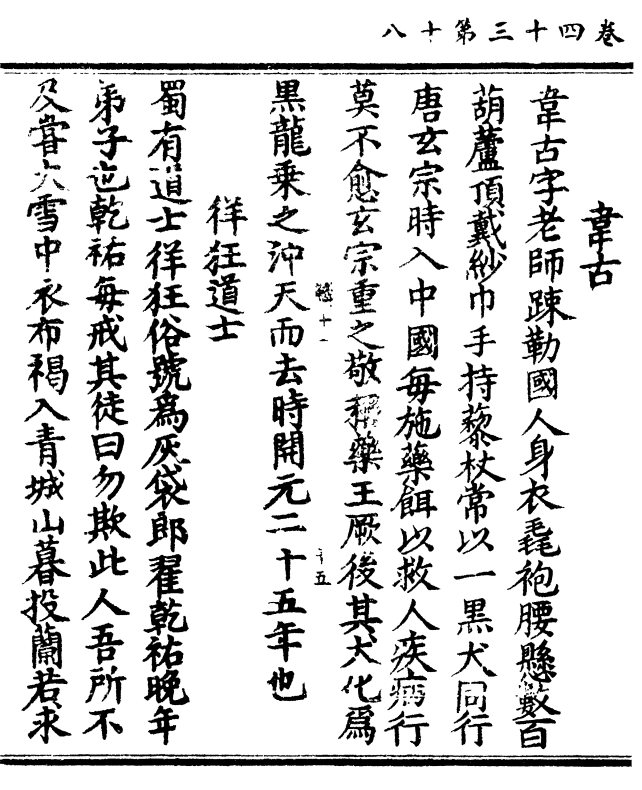 卷四十三第十八
韋古
韋古字老師踈勒國人身衣毳袍腰懸數百
葫蘆頂戴紗巾手持藜杖常以一黑犬同行
唐玄宗時入中國每施藥餌以救人疾病行
莫不愈玄宗重之敬稱藥王厥後其犬化爲
黑龍乘之沖天而去時開元二十五年也
徉狂道士
蜀有道士徉狂俗號爲灰袋郎翟乾祐晚年
弟子也乾祐每戒其徒曰勿欺此人吾所不
及嘗大雪中衣布褐入青城山暮投蘭若求